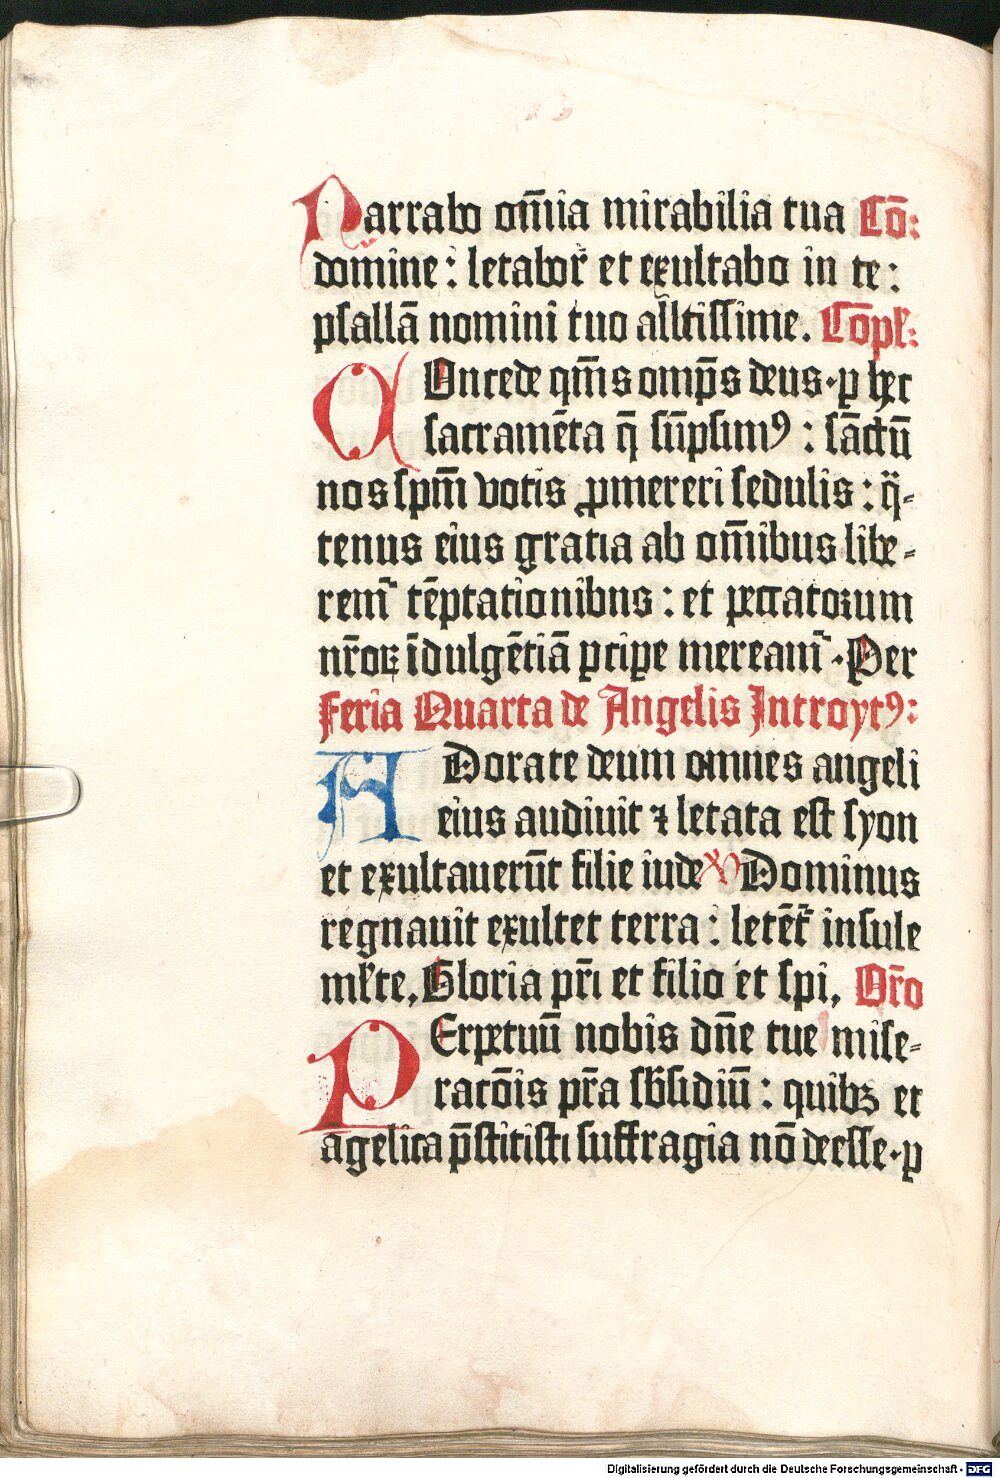 Narrabo om̄ia mirabilia tua Cō:
domine: letabor̄ et exultabo in te:
psallā nomini tuo alltissime. Cōpl:
COncede qm̄s omp̄s deus · ꝑ hec
sacramēta q̄ sūpsimꝰ : sāctū
nos spm̄ votis ꝓmereri sedulis : q̈-
tenus eius gratia ab om̄ibus libe-
rem̄ tēptationibus : et peccatoꝝum
nr̄oꝝ īdulgētiā ꝑcipe meream̄ · Per
Feria Quarta de Angelis Introytꝰ:
ADorate deum omnes angeli
eius audiuit ⁊ letata est syon
et exultauerūt filie iude ℣ Dominus
regnauit exultet terra : letēt̄ insule
ml̄te, Gloria pr̄i et filio et spi, Or̄o
PErpetuū nobis dn̄e tue mise-
racōis pr̄a sb̄sidiū : quibꝫ et
āgelica p̄stitisti suffragia nō deesse · ꝑ
Digitalisierung gefördert durch die Deutsche Forschungsgemeinschaft - DFG